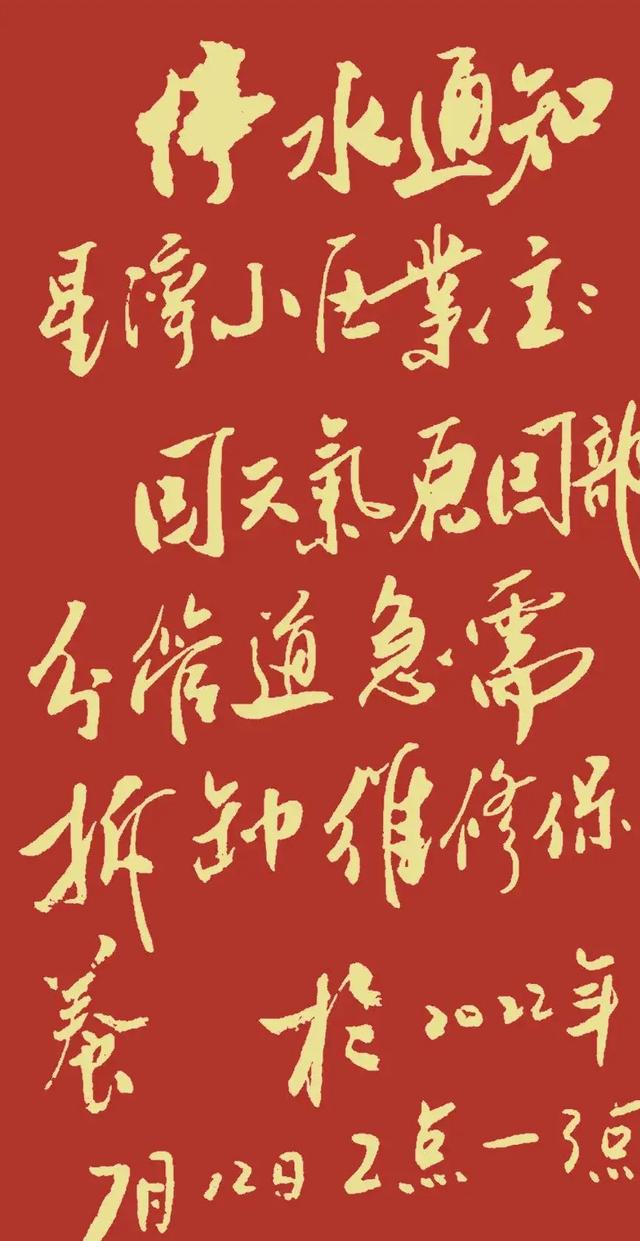 停水通知
星漳小区業主:
因天氣原因部
分管道急需
拆卸维修保
養 於2022年
7月12日2点一3点